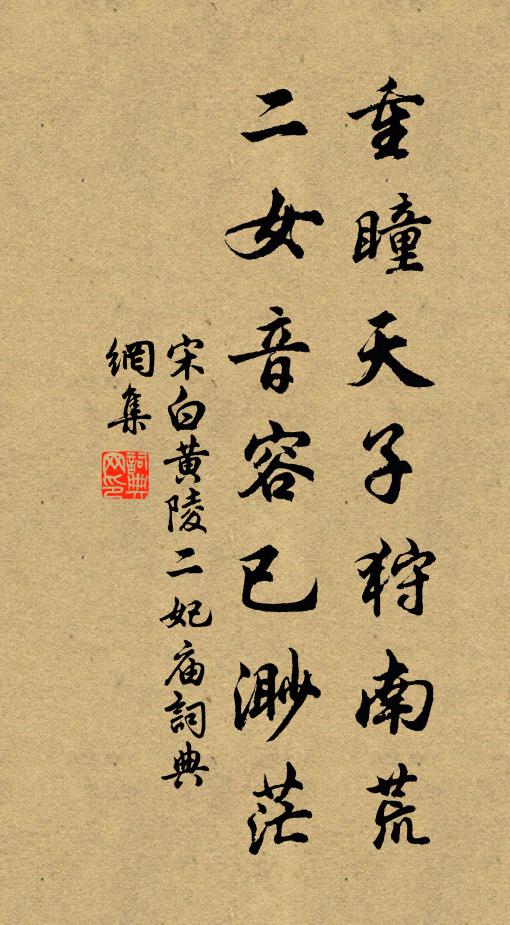 重瞳天子狩南荒
二女音容已渺茫
宋白黄陵二妃庙詞典
網集
詞典
网印